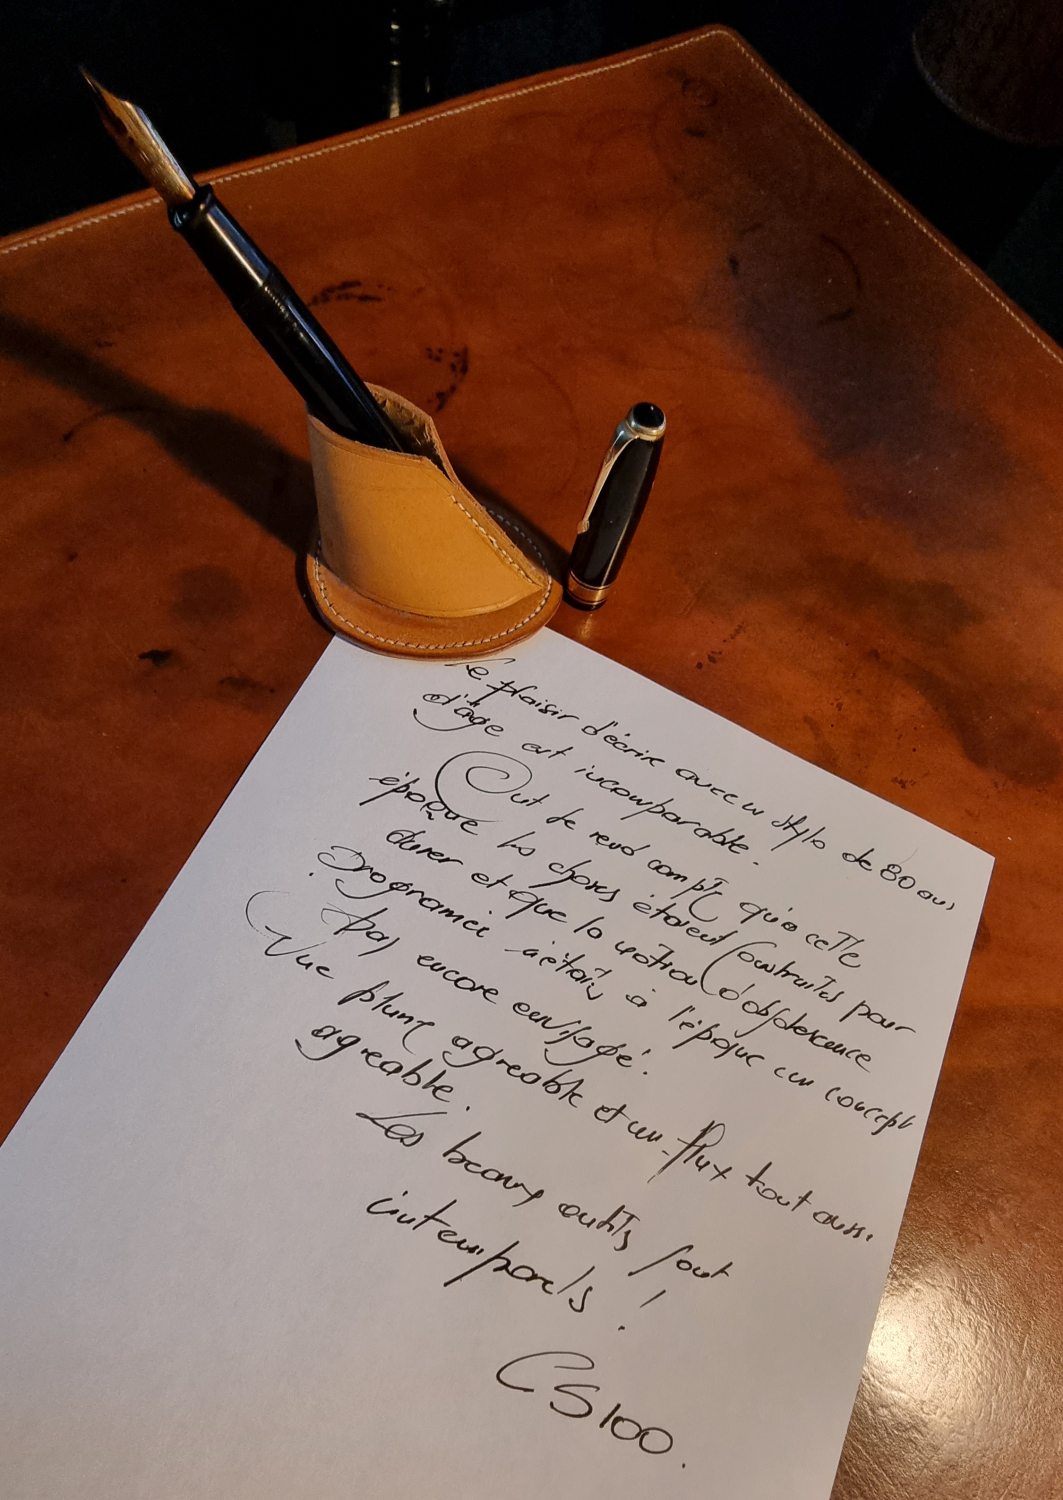 Le plaisir d'écrire avec un stylo de 80 ans
d'âge est incomparable.
On se rend compte qu'à cette
époque les choses étaient construites pour
durer et que la notion d'obsolescence
programmée n'était à l'époque un concept
pas encore envisagé.
Une plume agréable et un flux tout aussi
agréable.
Les beaux outils sont
intemporels !
CS100.